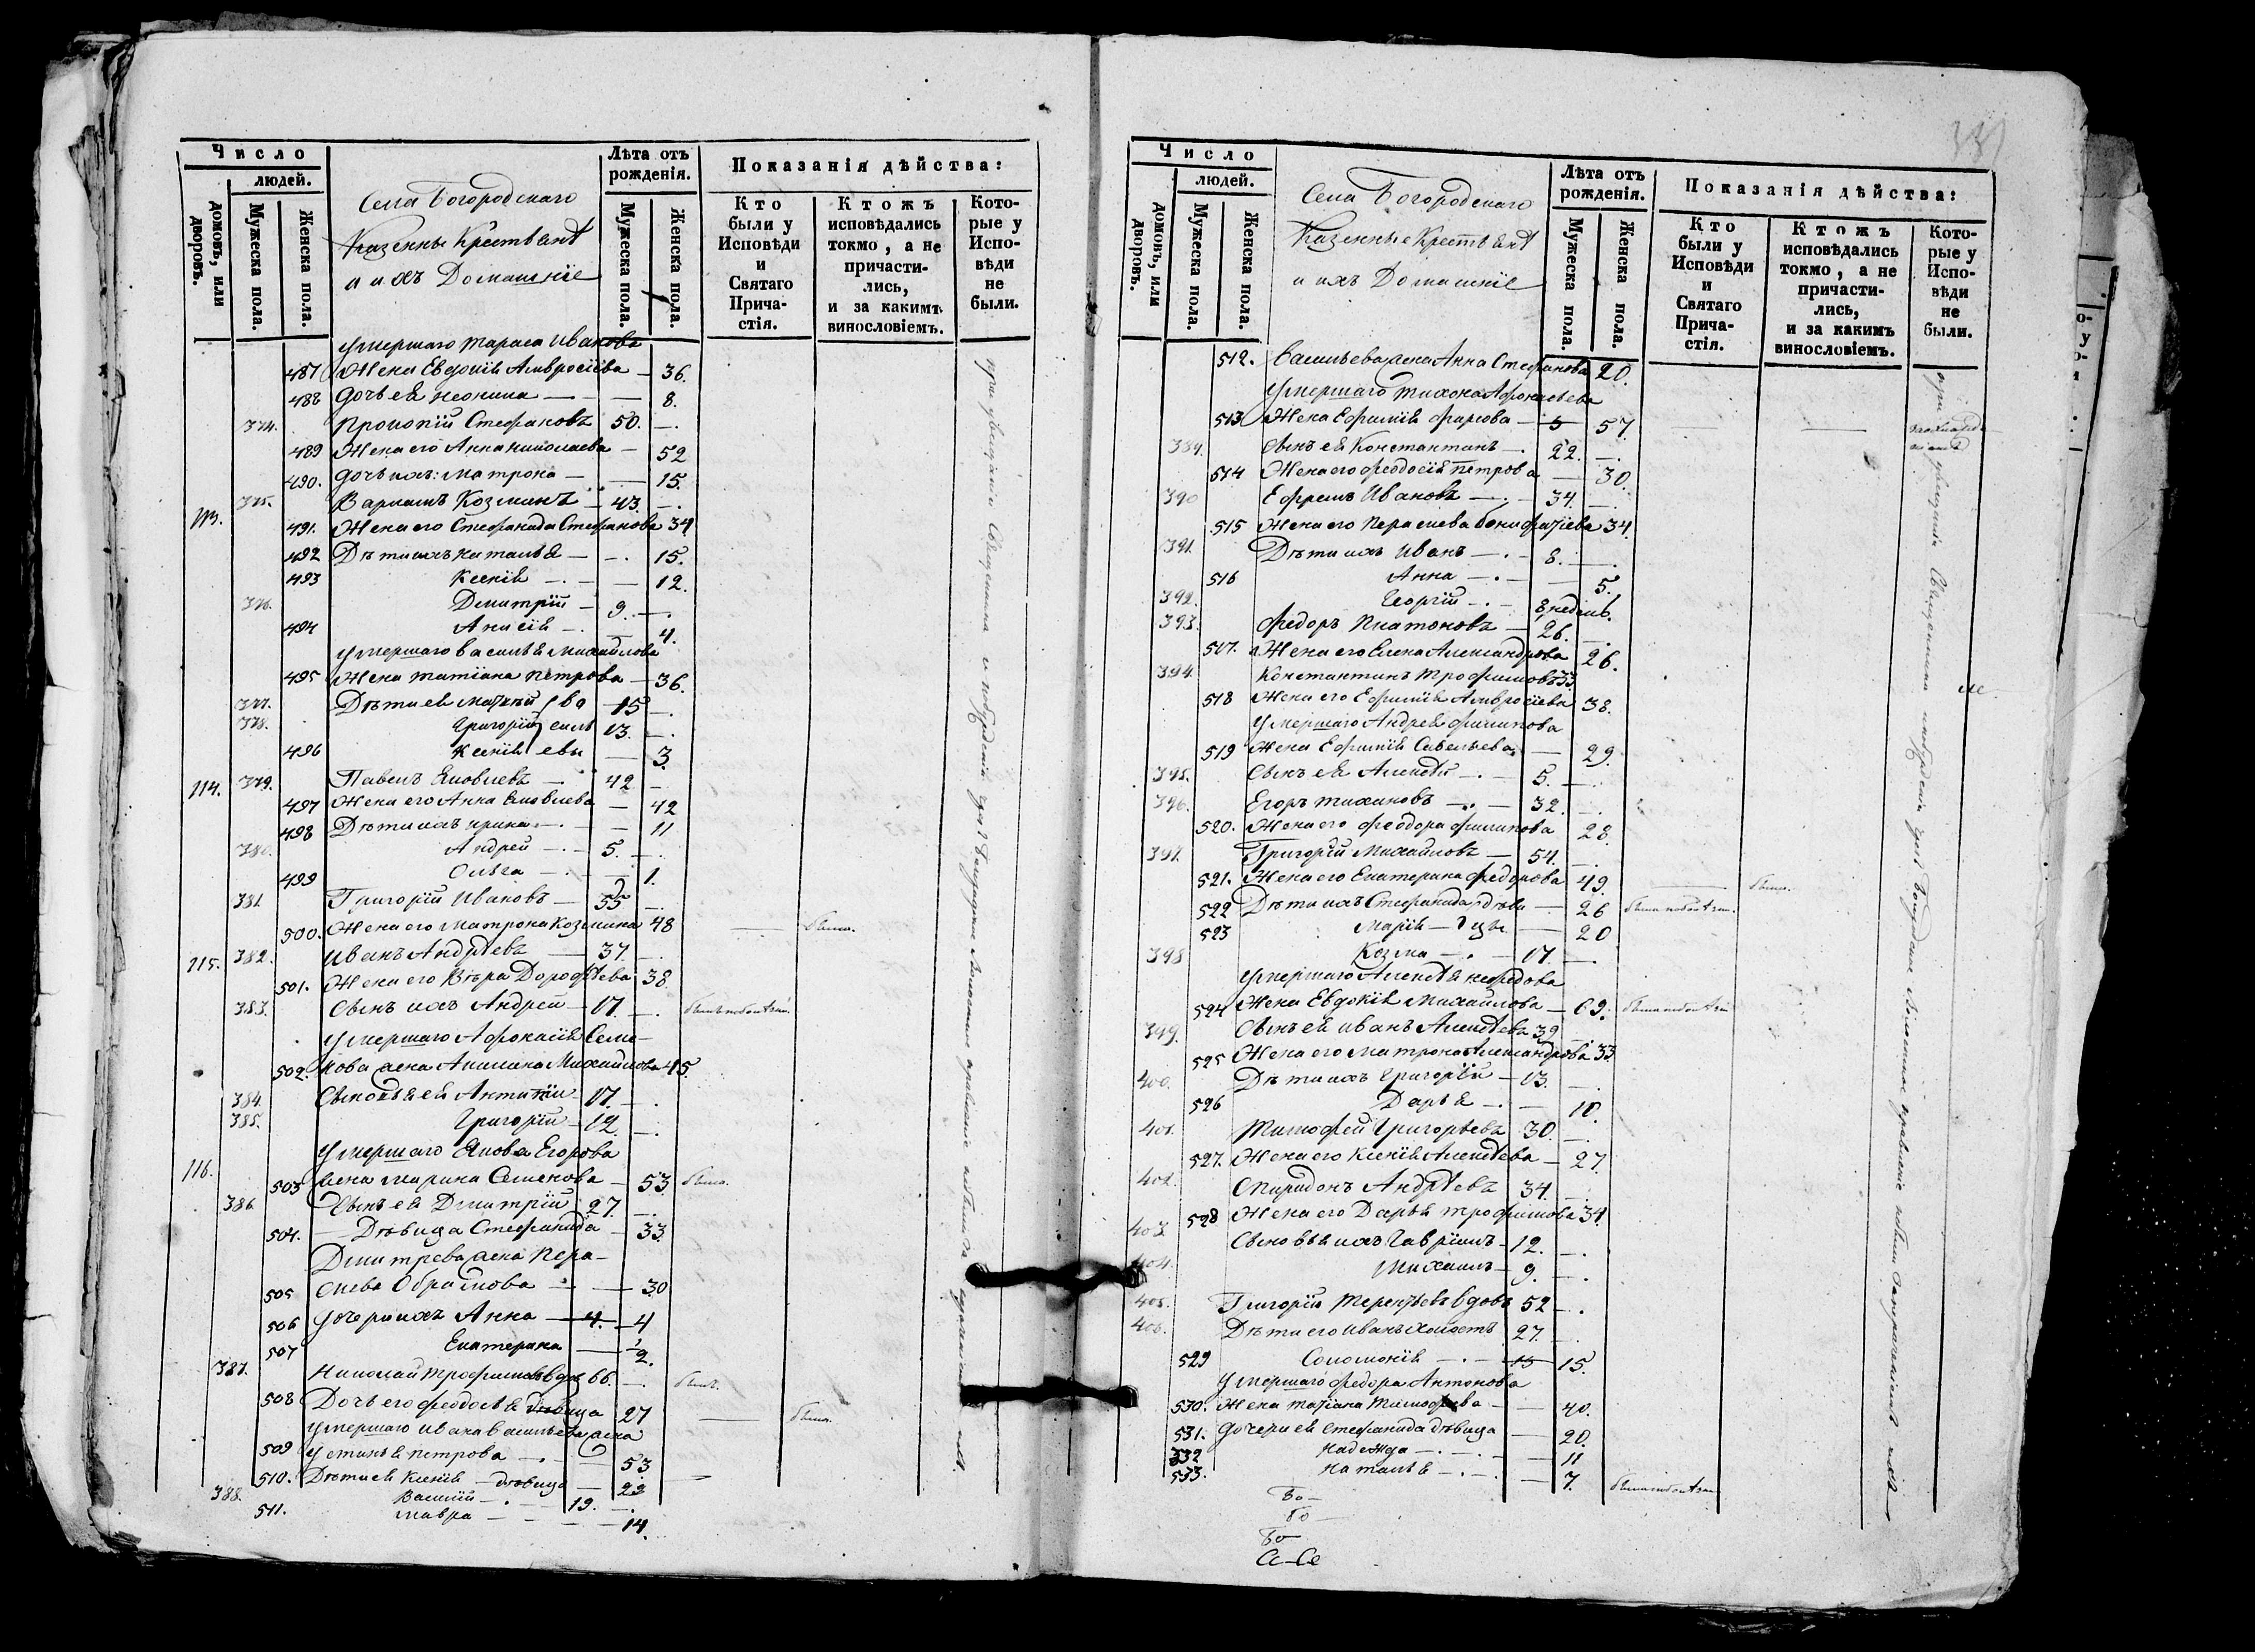 Число
людей.
домовъ, или дворовъ.
Мужеска пола.
Женска пола.
Села Богородскаго
Казенные Крестьянѣ
и ихъ Домашніе
Лѣта отъ рожденія.
Мужеска пола.
Женска пола.
Показанія дѣйства:
Кто были у Исповѣди и Святаго Причастія.
Ктожъ исповѣдались токмо, а не причастились, и за какимъ винословіемъ.
Которые у Исповѣди не были.
умершаго Тараса Иванова
487 Жена Евдокія Амвросіева — 36.
488 Дочь ея Неонила — 8.
374. Прокопій Стефановъ 50. —
489 Жена его Анна Николаева — 52
490. Дочь ихъ: Матрона — 15.
113. 375. Варламъ Козминъ — 43. —
491. Жена его Стефанида Стефанова 34
492 Дѣти ихъ Наталья — 15.
493 Ксенія — 12.
376. Дмитрій — 9. —
494 Анисія — 4.
умершаго Василья Михайлова
495 Жена Татіана Петрова — 36.
377. Дѣти ея Матвѣй 15 —
378. Григорій 13. —
496 Ксенія 3.
114. 379. Павелъ Яковлевъ — 42 —
497 Жена его Анна Яковлева — 42
498 Дѣти ихъ Ирина — 11
380. Андрей — 5. —
499 Ольга — 1.
381. Григорій Ивановъ — 55 —
500. Жена его Матрона Козмина 48 — была.
115. 382. Иванъ Андрѣевъ — 37. —
501. Жена его Вѣра Дорофѣева 38
383. Сынъ ихъ Андрей — 17. —
умершаго Афонасія Семе-
502. нова жена Акилина Михайлова 45.
384. Сыновья ея Антипій 17. —
385. Григорій — 12. —
116. умершаго Якова Егорова
503 жена Марина Семенова — 53. была.
386. Сынъ ея Дмитрій 27. —
504. — Дѣвица Стефанида — 33.
Дмитрева жена Пера-
505 скева Обрамова — 30
506 Дочери ихъ Анна — 4. — 4
507 Екатерина — 2.
387. Николай Трофимовъ вдов 66. — былъ.
508 Дочь его Феодосья дѣвица 27 — была.
умершаго Ивана Васильева жена
509 Устинья Петрова — 53
510. Дѣти ея Ксенія — дѣвица — 22
388. Василій — 19. —
511. Мавра — 14.
Число
людей.
домовъ, или дворовъ.
Мужеска пола.
Женска пола.
Села Богородскаго
Казенные Крестьянѣ
и ихъ Домашніе
Лѣта отъ рожденія.
Мужеска пола.
Женска пола.
Показанія дѣйства:
Кто были у Исповѣди и Святаго Причастія.
Ктожъ исповѣдались токмо, а не причастились, и за какимъ винословіемъ.
Которые у Исповѣди не были.
512. Васильева жена Анна Стефанова 20.
Умершаго Тихона Афонасьева
513 Жена Ефимія Фирсова — 57
389. Сынъ ея Константинъ — 22. —
514 Жена его Феодосія Петрова — 30.
390 Ефремъ Ивановъ — 34. —
515 Жена его Параскева Бонифатіева 34.
391. Дѣти ихъ Иванъ — 8. —
516 Анна — 5.
392. Георгій — 8 недель.
393. Федоръ Платоновъ — 26. —
517. Жена его Елена Александрова 26.
394. Константинъ Трофимовъ 33.
518 Жена его Ефимія Амвросіева 38.
Умершаго Андрея Филипова
519 Жена Ефимія Савельева — 29.
395. Сынъ ея Алексѣй — 5. —
396. Егоръ Тихоновъ — 32. —
520. Жена его Феодора Филипова 28.
397. Григорій Михайловъ — 54. —
521. Жена его Екатерина Федорова 49. — была.
522 Дѣти ихъ Стефанида дѣви — 26
523 Марія — цы — 20
398 Козма — 17. —
Умершаго Алексѣя Нефедова
524 Жена Евдокія Михайлова — 69.
399. Сынъ ея Иванъ Алексѣевъ 39 —
525 Жена его Матрона Александрова 33
400. Дѣти ихъ Григорій — 13. —
526 Дарья — 10.
401. Тимофей Григорьевъ 30. —
527. Жена его Ксенія Алексѣева — 27.
402. Спиридонъ Андрѣевъ 34. —
528 Жена его Дарья Трофимова 34
403. Сыновья ихъ Гаврілъ — 12. —
404. Михаилъ — 9. —
405. Григорій Терентьевъ вдовъ 52 —
406. Дѣти его Иванъ холостъ 27. —
529 Соломонія — 15 15.
Умершаго Федора Антонова
530. Жена Татіана Тимофѣева — 40.
531. Дочери ея Стефанида дѣвица — 20.
532 Надежда — 11
533. Наталья — 7.
Бо-
го-